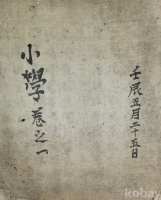 壬辰五月二十五日
小學卷之一
kobay